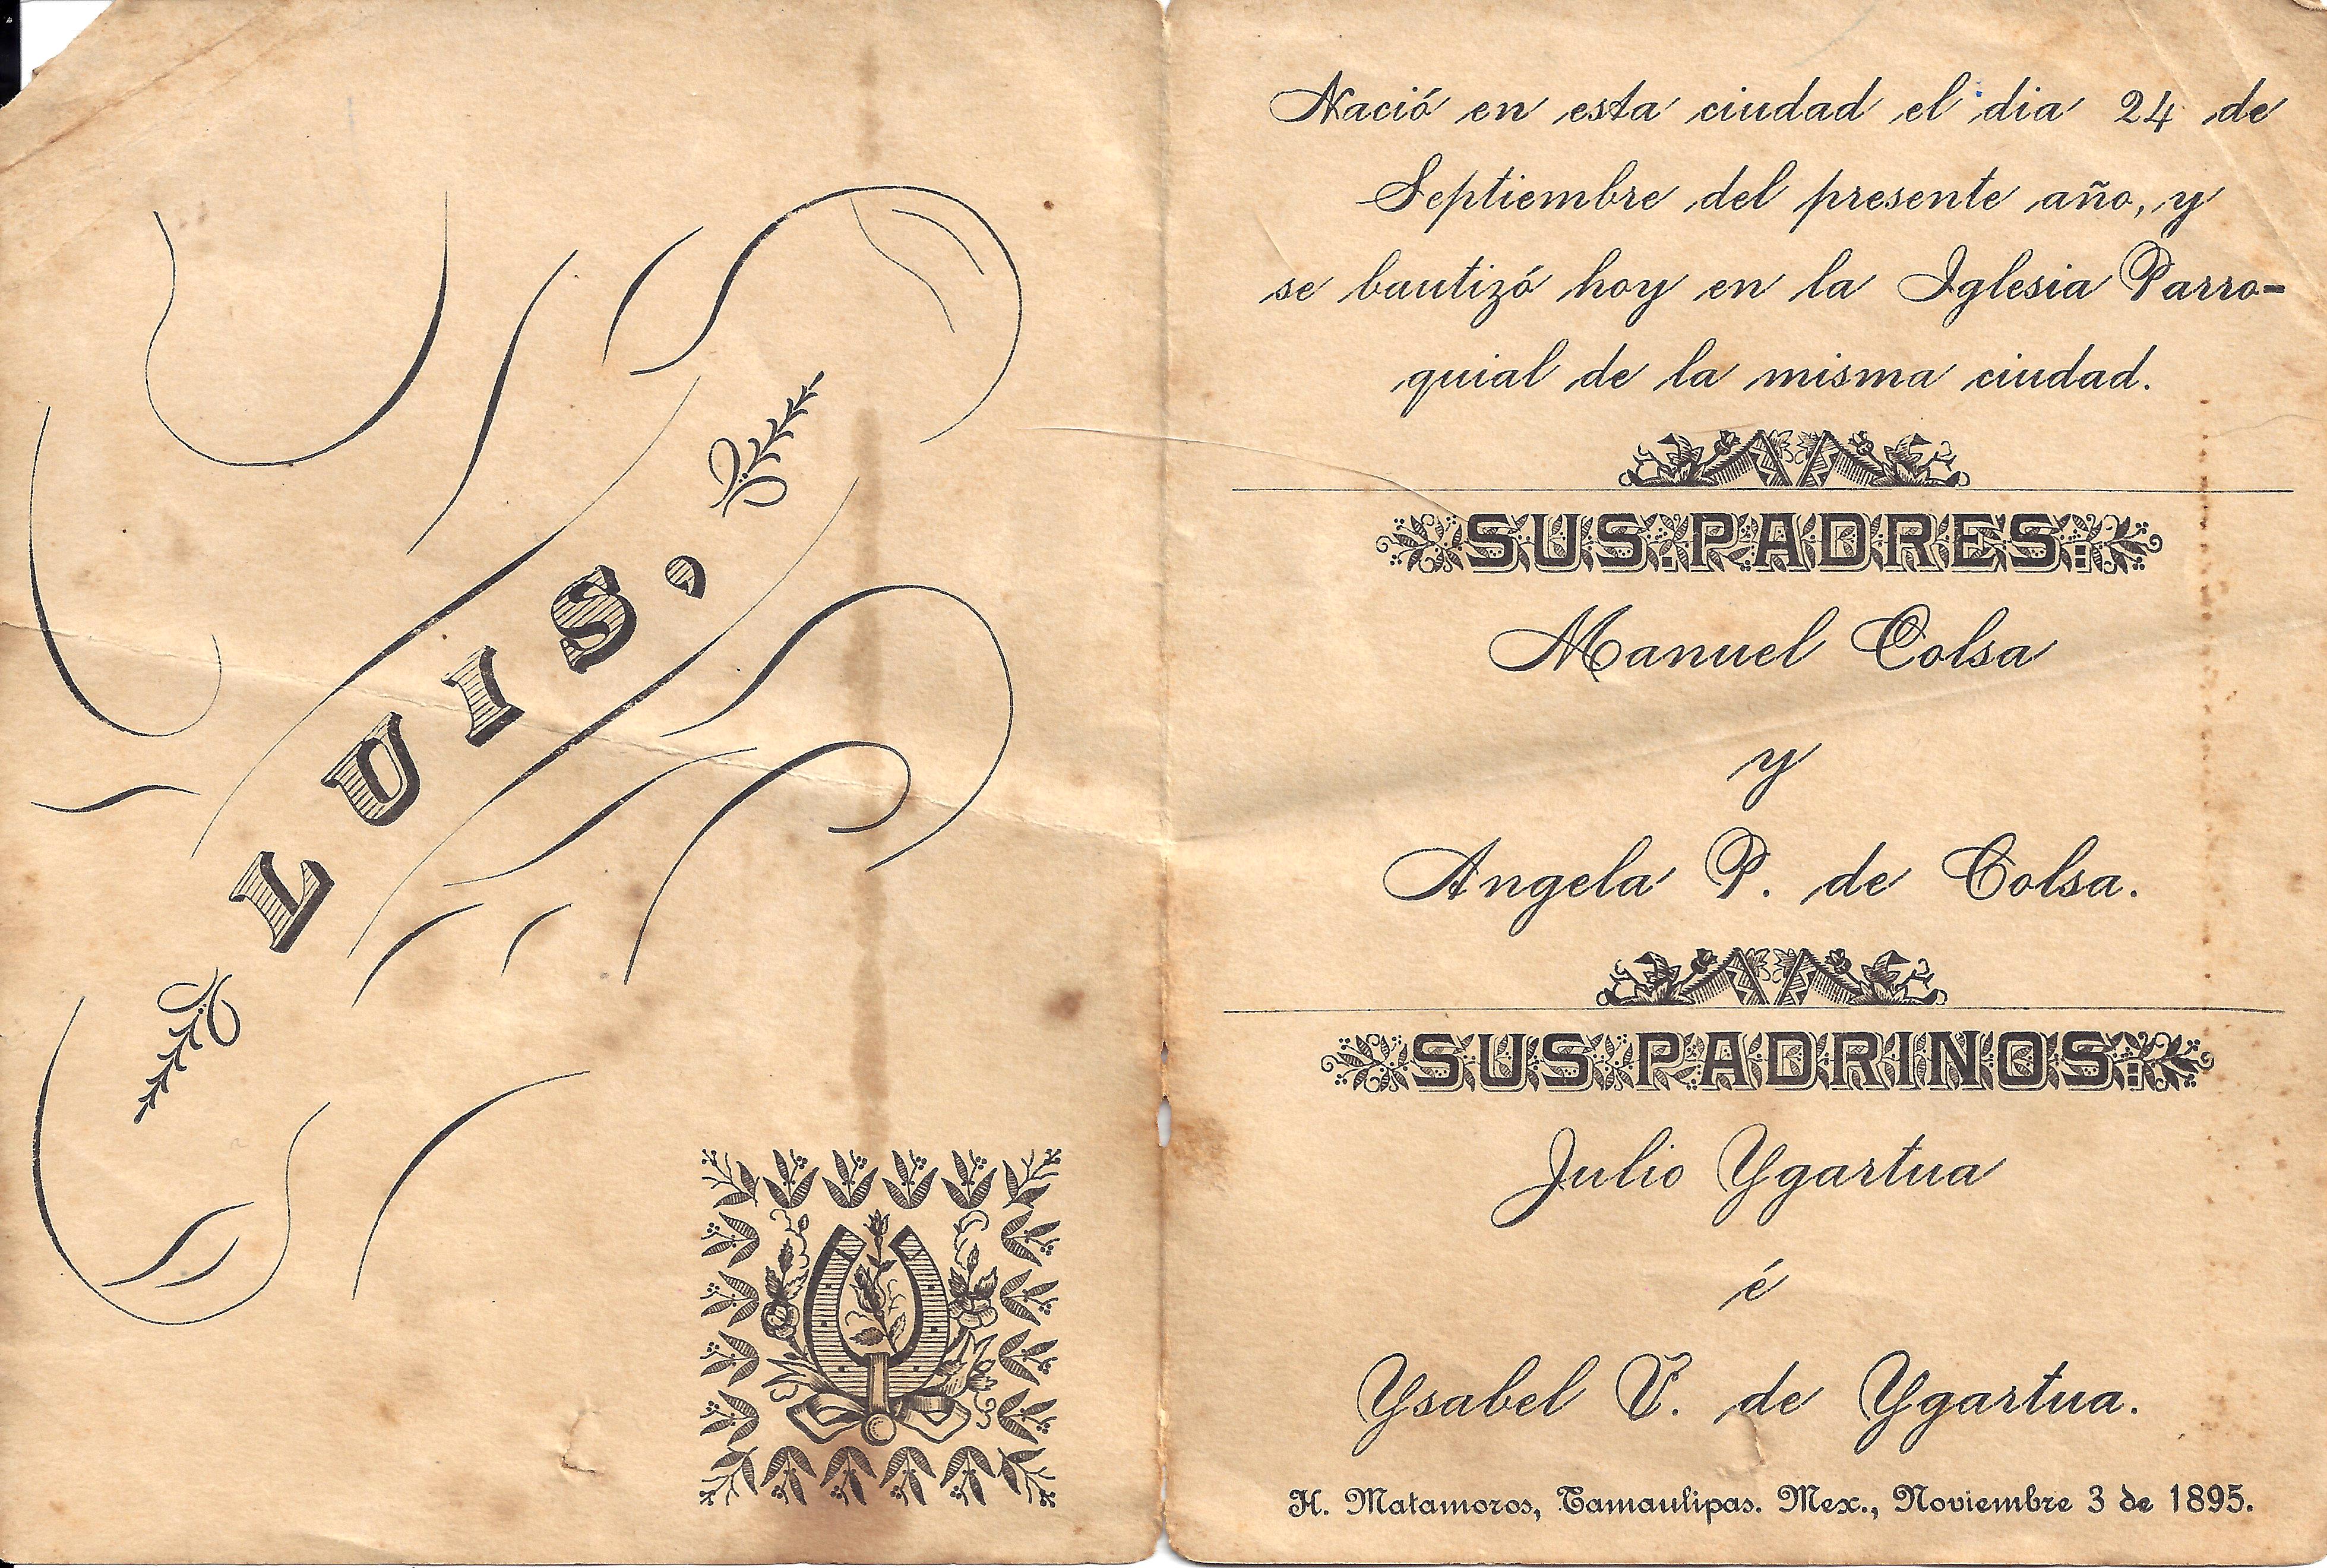 LUIS,
Nació en esta ciudad el dia 24 de
Septiembre del presente año, y
se bautizó hoy en la Iglesia Parro-
quial de la misma ciudad.
SUS PADRES:
Manuel Colsa
y
Angela P. de Colsa.
SUS PADRINOS:
Julio Ygartua
é
Ysabel V. de Ygartua.
H. Matamoros, Tamaulipas. Mex., Noviembre 3 de 1895.